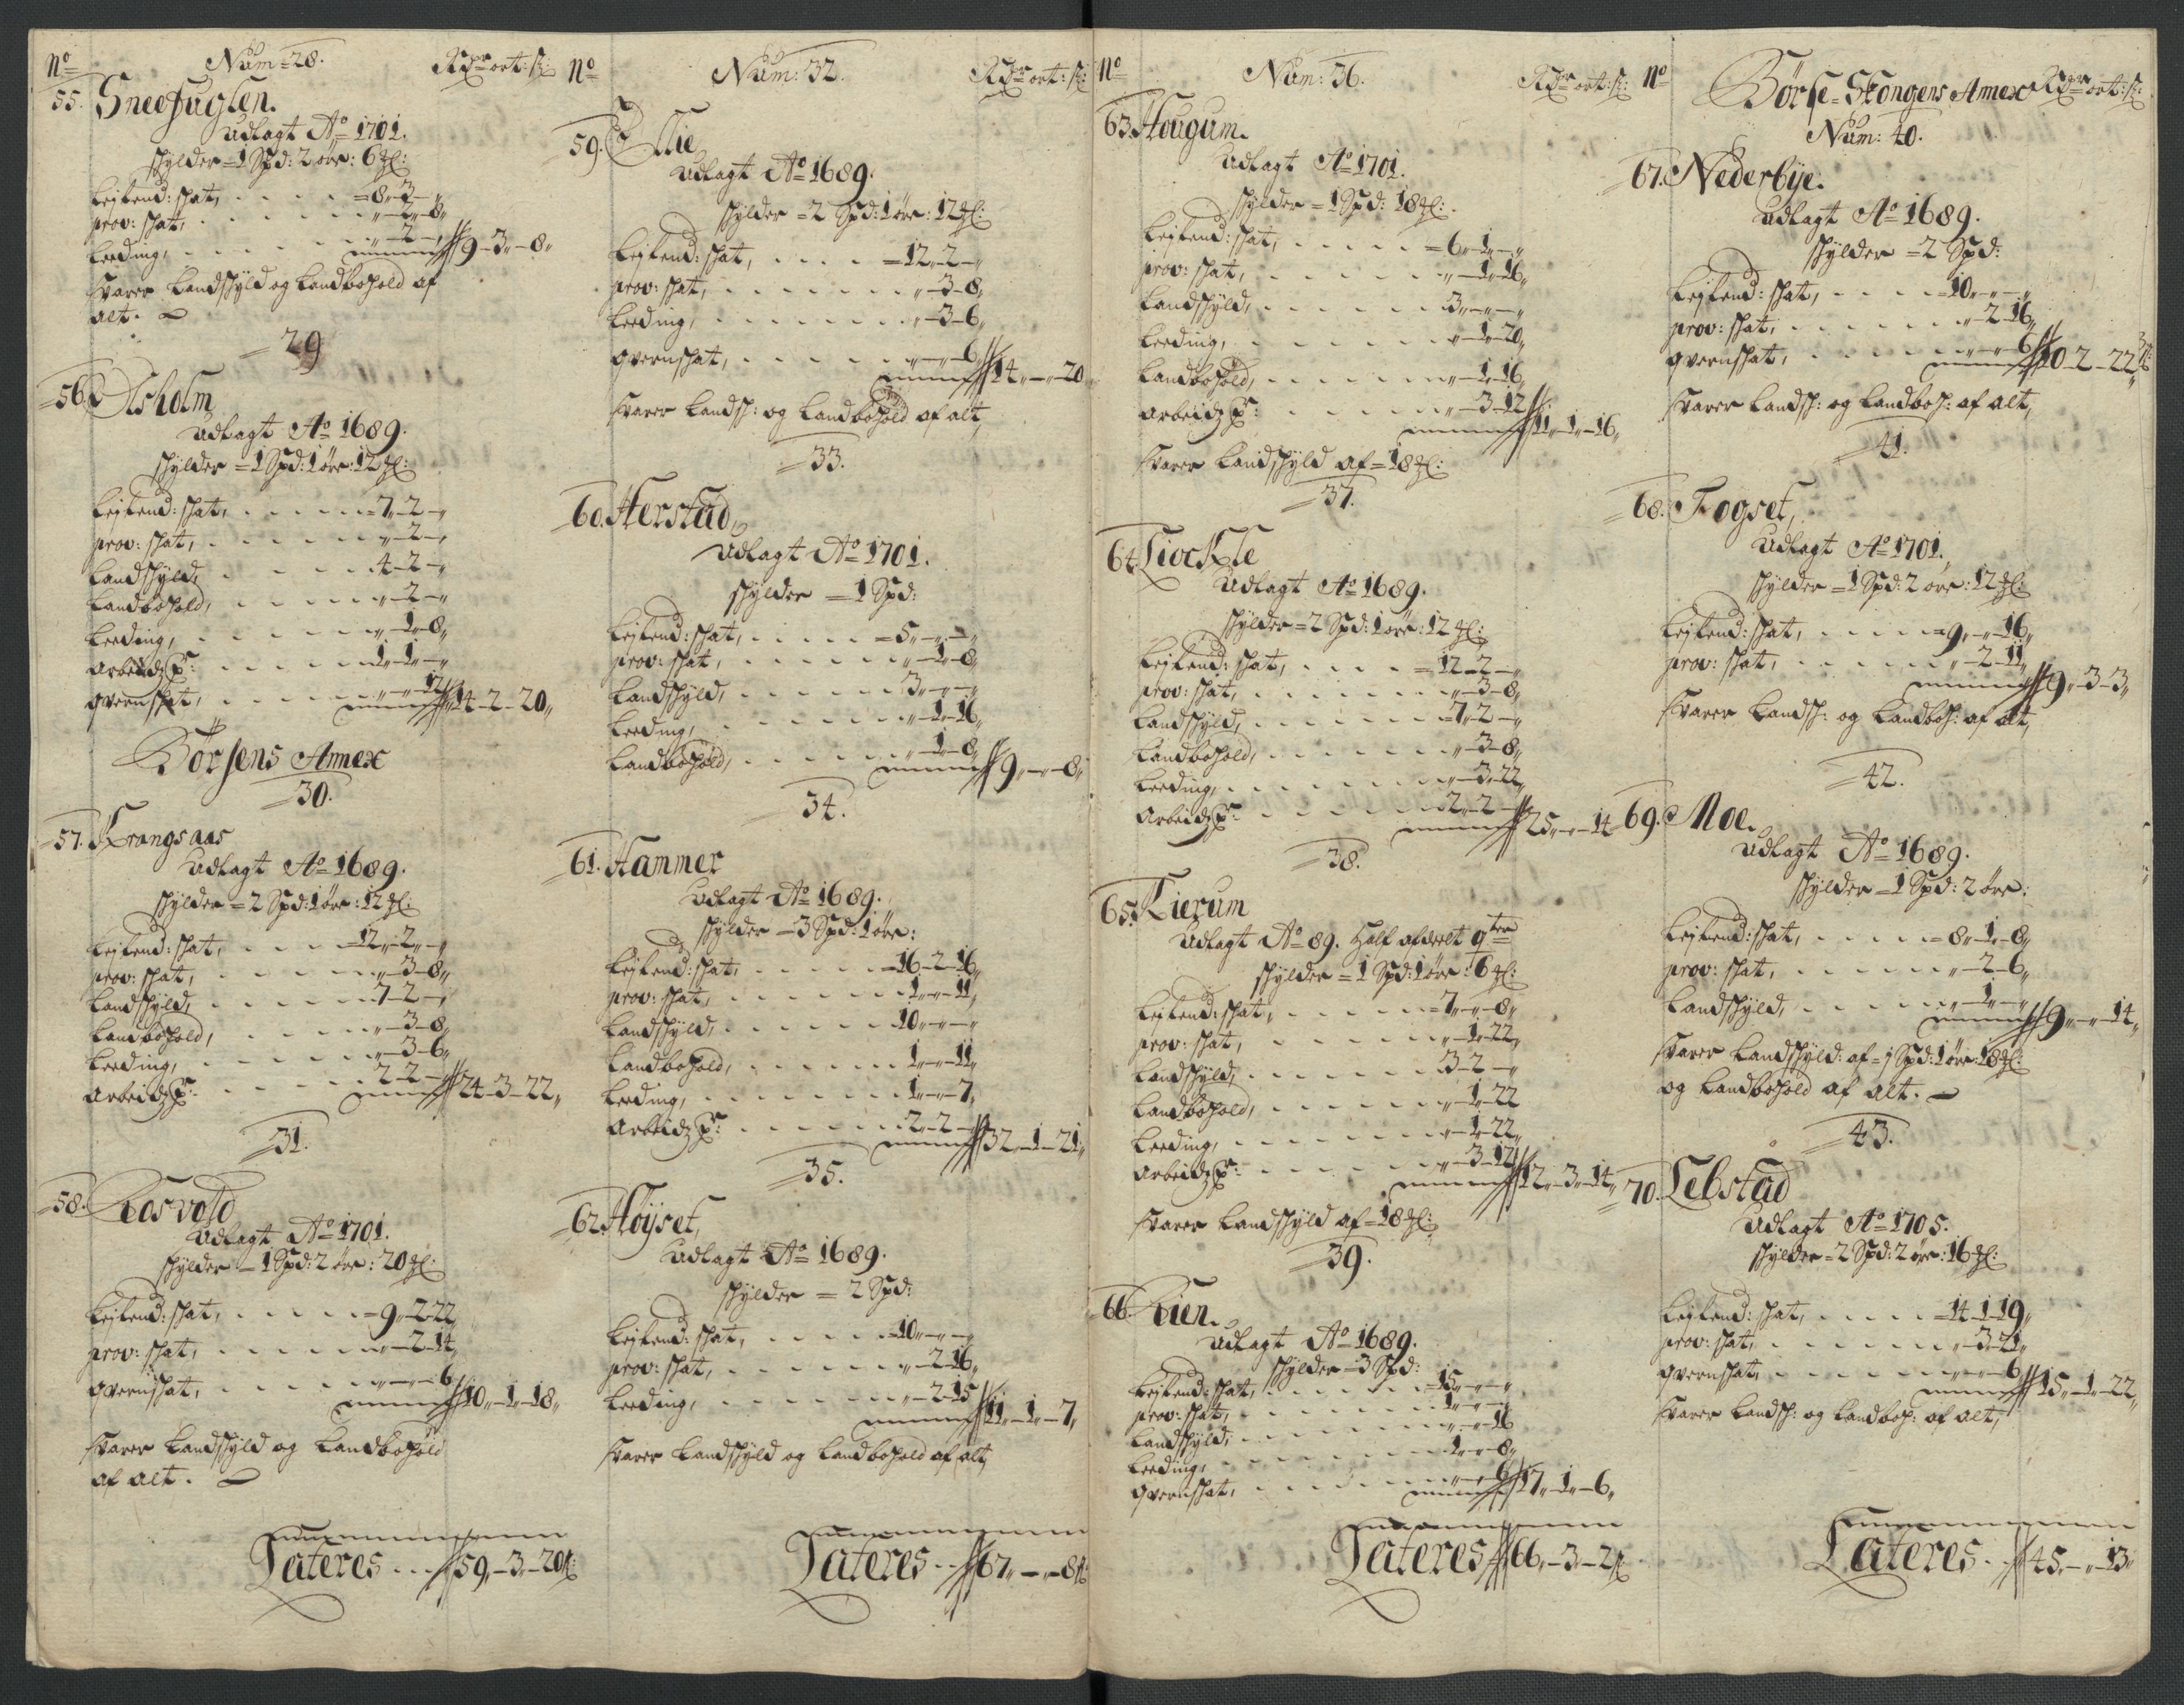 No Num: 28. Rdr ort: s:
55. Sneefuglen.
Udlagt Ao 1701.
skylder = 1 Spd: 2 öre: 6 #:
Leilend: skat, . . . . = 8„-3-„
prov: skat, . . . . „-2-8„
Leeding, . . . . „-2-„ 9-3„-8„
Svarer Landskyld og Landbohold af
alt.
29
56. Olsholm
Udlagt Ao 1689.
skylder = 1 Spd: 1 öre: 12 #:
Leilend: skat, . . . . = 7-2-„
prov: skat, . . . . „-2-„
Landskyld, . . . . 4-2-„
Landbohold, . . . . „-2-„
Leeding, . . . . „-1-8„
Arbeidz : . . . . 1„-1-„
Qvernskat, . . . . „-„-12„ 14-2-20„
Börsens Annex
30.
57. Krangsaas
Udlagt Ao 1689.
skylder = 2 Spd: 1 öre: 12 #:
Leilend: skat, . . . . = 12„-2„-„
prov: skat, . . . . „-3-8„
Landskyld, . . . . 7-2-„
Landbohold, . . . . „-3-8„
Leeding, . . . . „-3-6„
Arbeidz : . . . . 2-2-„ 24-3-22„
31.
58. Rosvold
Udlagt Ao 1701.
skylder = 1 Spd: 2 öre: 20 #:
Leilend: skat, . . . . = 9„-2-22„
prov: skat, . . . . „-2-14„
Qvernskat, . . . . „-„-6 10„-1-18„
Svarer Landskyld og Landbohold
af alt.
Lateres . . . 59„-3-20 s:
No Num: 32. Rdr ort: s:
59. Ellie
Udlagt Ao 1689.
skylder = 2 Spd: 1 öre: 12 #:
Leilend: skat, . . . . = 12„-2-„
prov: skat, . . . . „-3-8„
Leeding, . . . . „-3-6„
Qvernskat, . . . . „-„-6„ 14„-„-20„
Svarer Landsk: og Landbohold af alt,
33.
60. Herstad,
Udlagt Ao 1701.
skylder = 1 Spd:
Leilend: skat, . . . . = 5„-„-„
prov: skat, . . . . „-1-8„
Landskyld, . . . . 3„-„-„
Leeding, . . . . „-1-16„
Landbohold, . . . . „-1-8„ 9„-„-8„
34.
61. Hammer
Udlagt Ao 1689.
skylder = 3 Spd: 1 öre:
Leilend: skat, . . . . = 16-2-16„
prov: skat, . . . . 1„-„-11„
Landskyld, . . . . 10„-„-„
Landbohold, . . . . 1„-„-11„
Leeding, . . . . 1„-„-7„
Arbeidz : . . . . 2„-2-„ 32„-1-21„
35.
62. Höyset,
Udlagt Ao 1689.
skylder = 2 Spd:
Leilend: skat, . . . . = 10„-„-„
prov: skat, . . . . „-2-16„
Leeding, . . . . „-2-15 11„-1„-7„
Svarer Landskyld og Landbohold af alt,
Lateres . . . 67„-„-8 s:
No Num: 36. Rdr ort: s:
63. Hougum.
Udlagt Ao 1701.
skylder = 1 Spd: 18 #:
Leilend: skat, . . . . = 6„-1„-„
prov: skat, . . . . „-1-16„
Landskyld, . . . . 3„-„-„
Leeding, . . . . „-1-20„
Landbohold, . . . . „-1-16„
Arbeidz : . . . . „-3-12„ 11„-1„-16„
Svarer Landskyld af = 18 #:
37.
64. Kiockle
Udlagt Ao 1689.
skylder = 2 Spd: 1 öre: 12 #:
Leilend: skat, . . . . = 12-2-„
prov: skat, . . . . „-3-8„
Landskyld, . . . . 7„-2-„
Landbohold, . . . . „-3-8„
Leeding, . . . . „-3-22„
Arbeidz : . . . . 2„-2-„ 25„-„-14
38.
65. Kierum
Udlagt Ao 89. Half afdeelt
skylder = 1 Spd: 1 öre: 6 #:
Leilend: skat, . . . . = 7„-„-8„
prov: skat, . . . . „-1-22„
Landskyld, . . . . 3-2-„
Landbohold, . . . . „-1-22
Leeding, . . . . „-1-22„
Arbeidz : . . . . „-3-12„ 12„-3„-14„
Svarer Landskyld af = 18 #:
39.
66. Lien.
Udlagt Ao 1689.
skylder = 3 Spd:
Leilend: skat, . . . . = 15„-„-„
prov: skat, . . . . 1„-„-„
Landskyld, . . . . „-„-16
Leeding, . . . . 1„-„-8„
Qvernskat, . . . . „-„-6 17„-1„-6„
Lateres 66„-3-2 s:
No Börse-Skongens Annex Rdr ort: s:
Num: 40.
67. Nederbÿe.
Udlagt Ao 1689.
skylder = 2 Spd:
Leilend: skat, . . . . = 10„-„-„
prov: skat, . . . . „-2-16„
Qvernskat, . . . . „-„-6 10-2-22„
Svarer Landsk: og Landboh: af alt,
41.
68. Fogset,
Udlagt Ao 1701.
skylder = 1 Spd: 2 öre: 12 #:
Leilend: skat, . . . . = 9„-„-16„
prov: skat, . . . . „-2-11„ 9„-3-3„
Svarer Landsk: og Landboh: af alt,
42.
69. Moe.
Udlagt Ao 1689.
skylder = 1 Spd: 2 öre:
Leilend: skat, . . . . = 8„-1-8„
prov: skat, . . . . „-2-6„
Landskyld, . . . . „-1-„ 9„-„-14„
Svarer Landskyld: af = 1 Spd: 1 öre: 18 #:
og Landbohold af alt.
43.
70. Lebstad
Udlagt Ao 1705.
skylder = 2 Spd: 2 öre: 16 #:
Leilend: skat, . . . . = 14-1-19„
prov: skat, . . . . „-3-21„
Qvernskat, . . . . „-„-6„ 15„-1-22„
Svarer Landsk: og Landboh: af alt,
Lateres . . 45„-„-13„